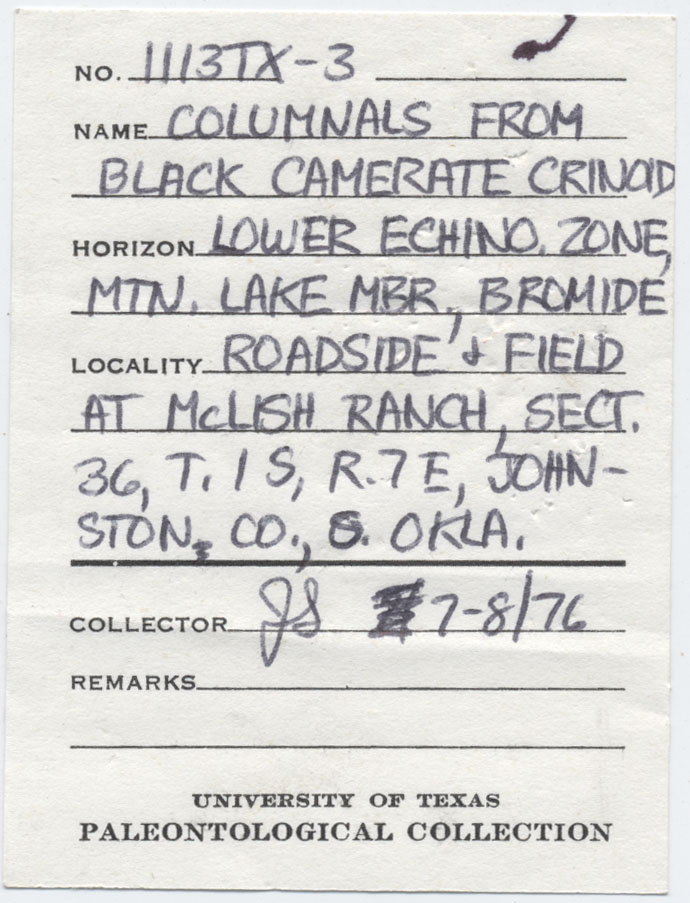 NO. 1113TX-3
NAME COLUMNALS FROM
BLACK CAMERATE CRINOID
HORIZON LOWER ECHINO. ZONE,
MTN. LAKE MBR., BROMIDE
LOCALITY ROADSIDE & FIELD
AT McLISH RANCH, SECT.
36, T. 1 S, R. 7 E, JOHN-
STON, CO., S. OKLA.
COLLECTOR JS 7-8/76
REMARKS
UNIVERSITY OF TEXAS
PALEONTOLOGICAL COLLECTION